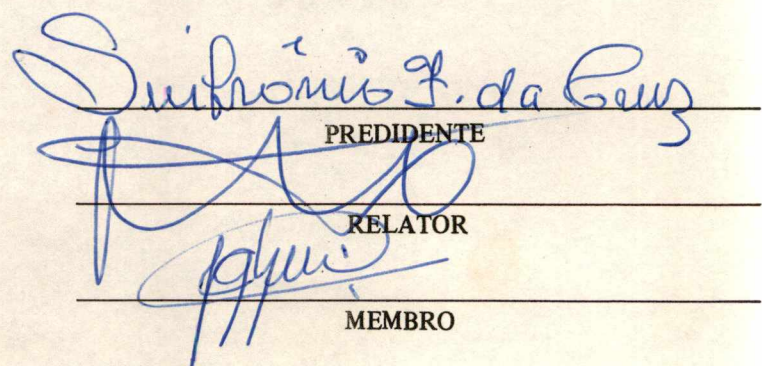 Sinfrônio F. da Cruz
PREDIDENTE
RELATOR
MEMBRO